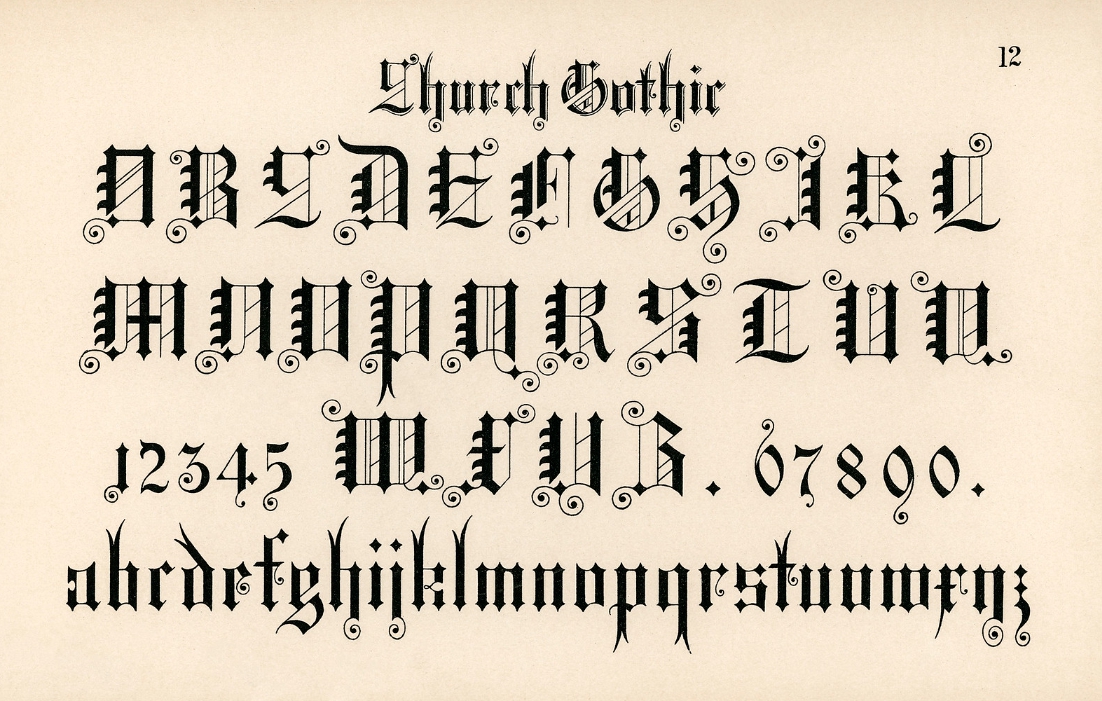 12
Church Gothic
A B C D E F G H I K L
M N O P Q R S T U V
1 2 3 4 5 W X Y Z . 6 7 8 9 0 .
a b c d e f g h i j k l m n o p q r s t u v w x y z